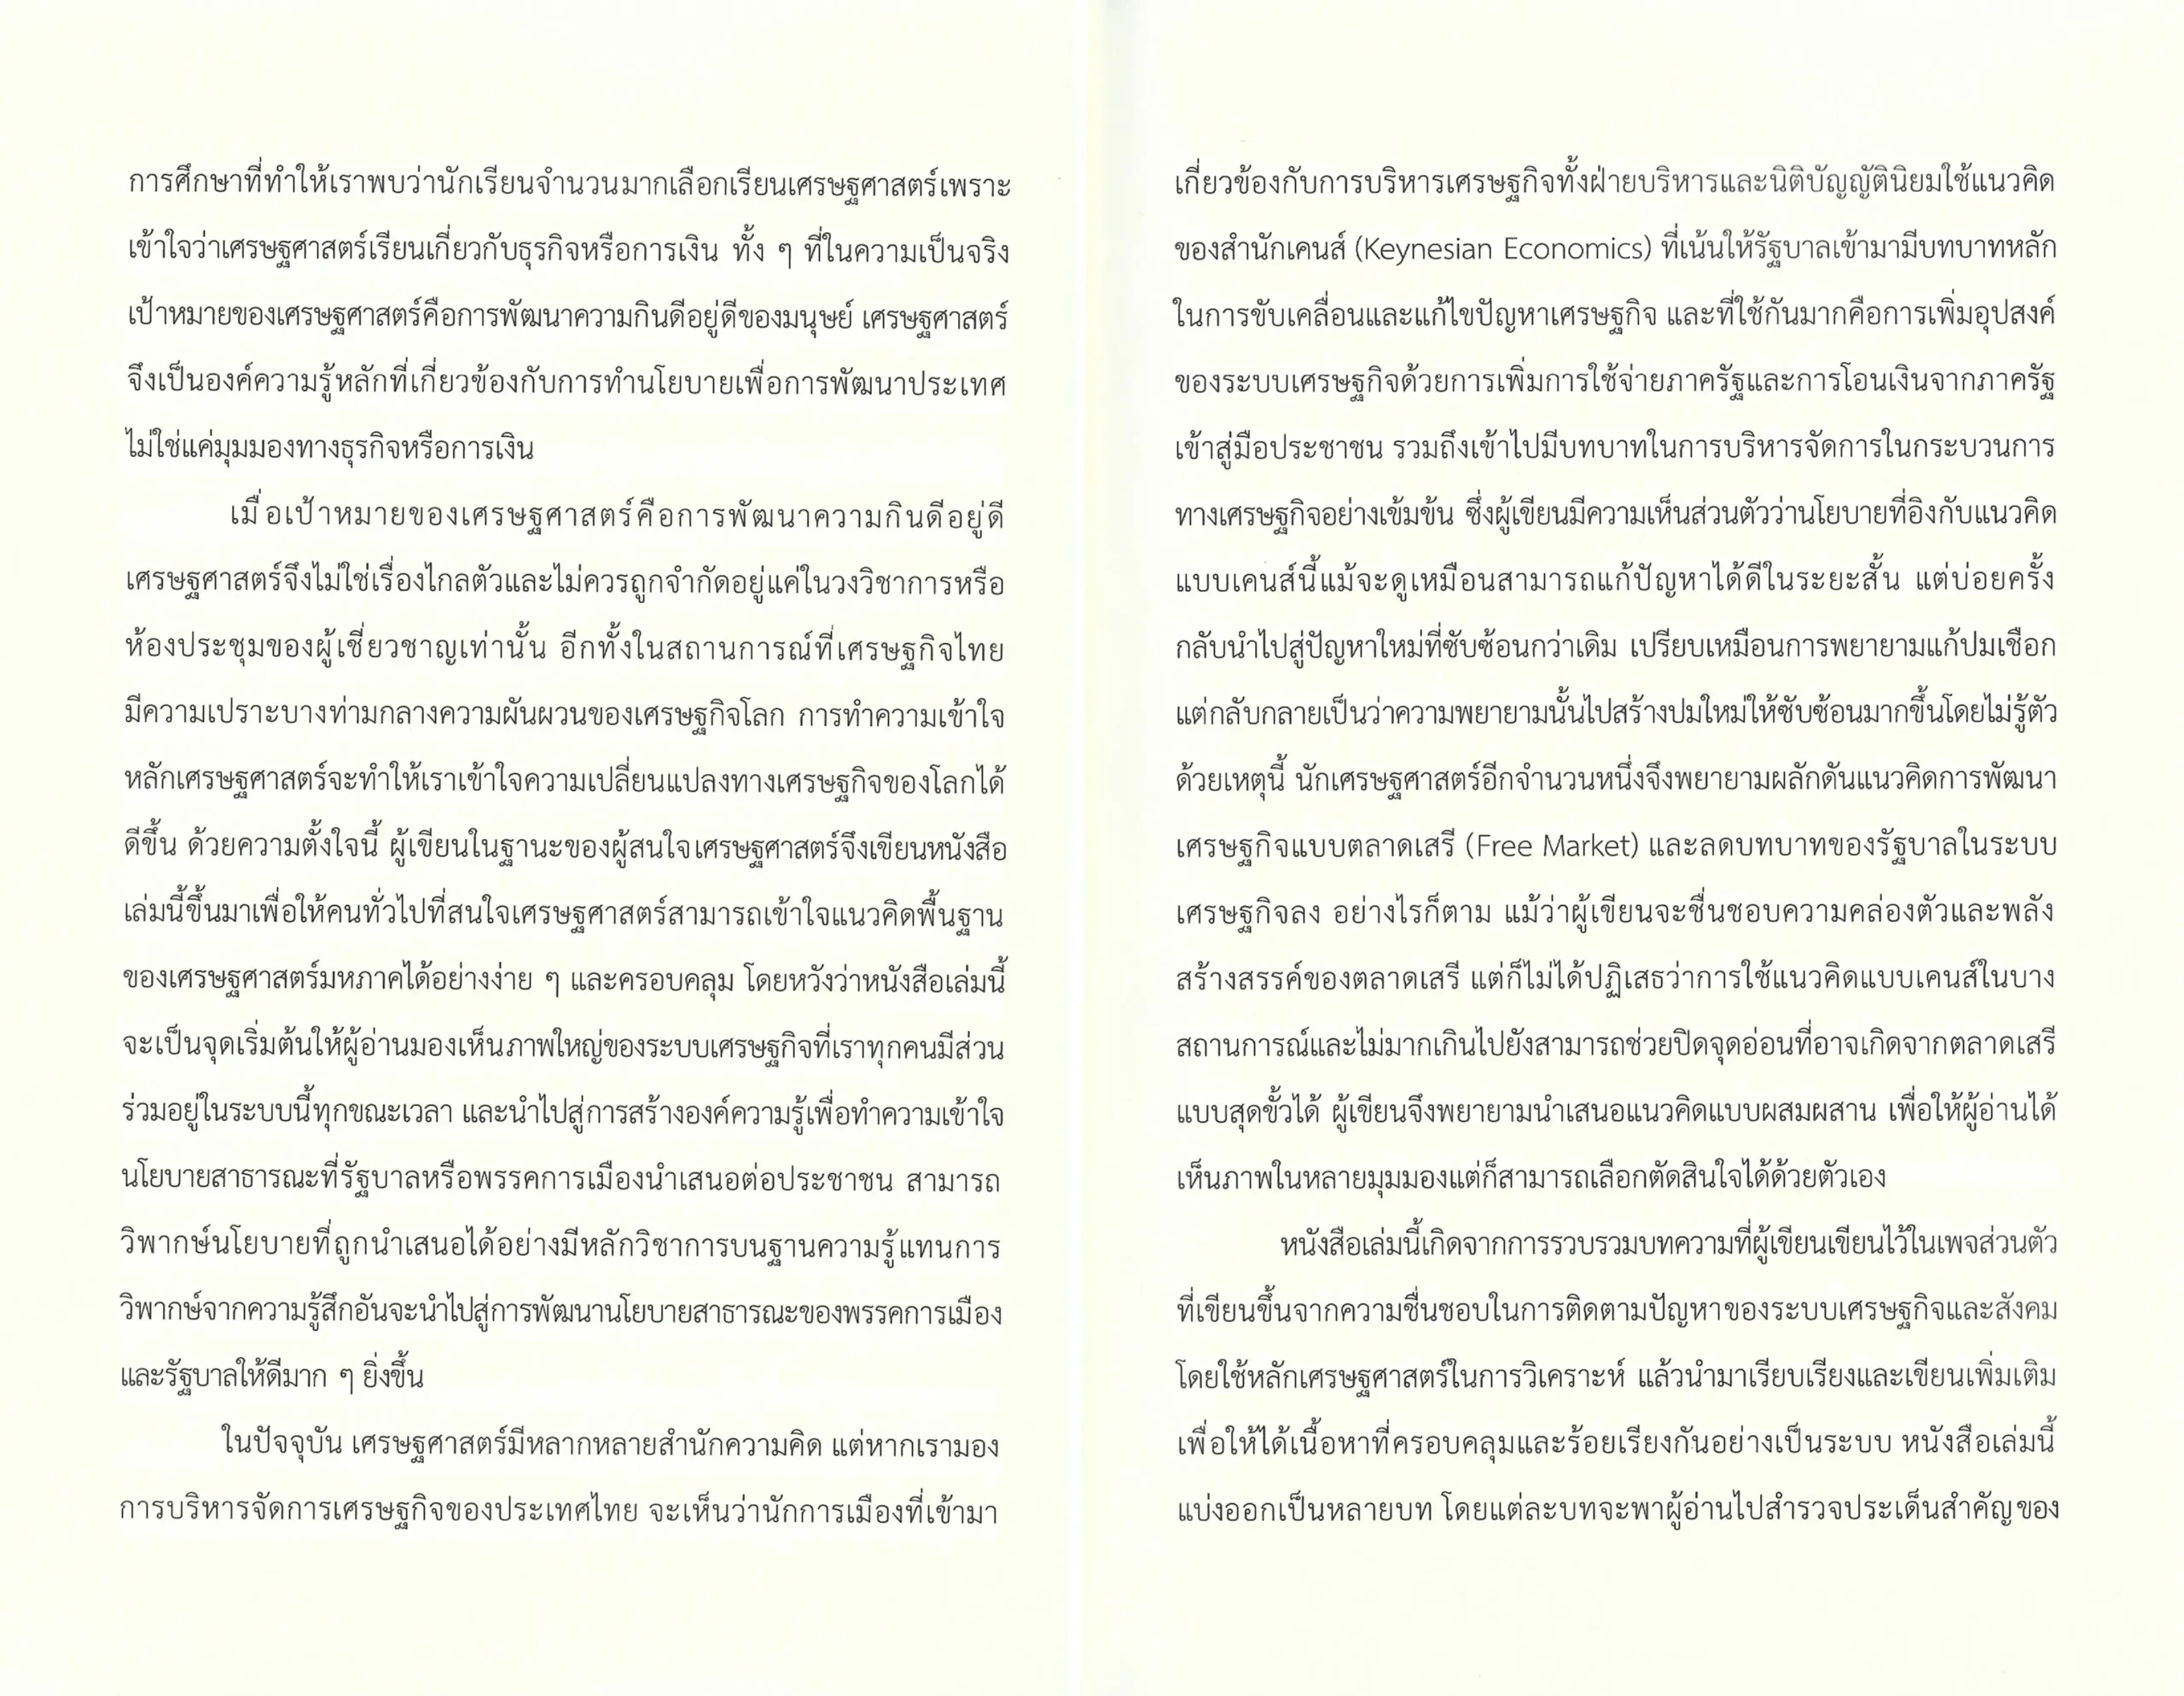 การศึกษาที่ทำให้เราพบว่านักเรียนจำนวนมากเลือกเรียนเศรษฐศาสตร์เพราะ
เข้าใจว่าเศรษฐศาสตร์เรียนเกี่ยวกับธุรกิจหรือการเงิน ทั้ง ๆ ที่ในความเป็นจริง
เป้าหมายของเศรษฐศาสตร์คือการพัฒนาความกินดีอยู่ดีของมนุษย์ เศรษฐศาสตร์
จึงเป็นองค์ความรู้หลักที่เกี่ยวข้องกับการทำนโยบายเพื่อการพัฒนาประเทศ
ไม่ใช่แค่มุมมองทางธุรกิจหรือการเงิน
เมื่อเป้าหมายของเศรษฐศาสตร์คือการพัฒนาความกินดีอยู่ดี
เศรษฐศาสตร์จึงไม่ใช่เรื่องไกลตัวและไม่ควรถูกจำกัดอยู่แค่ในวงวิชาการหรือ
ห้องประชุมของผู้เชี่ยวชาญเท่านั้น อีกทั้งในสถานการณ์ที่เศรษฐกิจไทย
มีความเปราะบางท่ามกลางความผันผวนของเศรษฐกิจโลก การทำความเข้าใจ
หลักเศรษฐศาสตร์จะทำให้เราเข้าใจความเปลี่ยนแปลงทางเศรษฐกิจของโลกได้
ดีขึ้น ด้วยความตั้งใจนี้ ผู้เขียนในฐานะของผู้สนใจเศรษฐศาสตร์จึงเขียนหนังสือ
เล่มนี้ขึ้นมาเพื่อให้คนทั่วไปที่สนใจเศรษฐศาสตร์สามารถเข้าใจแนวคิดพื้นฐาน
ของเศรษฐศาสตร์มหภาคได้อย่างง่าย ๆ และครอบคลุม โดยหวังว่าหนังสือเล่มนี้
จะเป็นจุดเริ่มต้นให้ผู้อ่านมองเห็นภาพใหญ่ของระบบเศรษฐกิจที่เราทุกคนมีส่วน
ร่วมอยู่ในระบบนี้ทุกขณะเวลา และนำไปสู่การสร้างองค์ความรู้เพื่อทำความเข้าใจ
นโยบายสาธารณะที่รัฐบาลหรือพรรคการเมืองนำเสนอต่อประชาชน สามารถ
วิพากษ์นโยบายที่ถูกนำเสนอได้อย่างมีหลักวิชาการบนฐานความรู้แทนการ
วิพากษ์จากความรู้สึกอันจะนำไปสู่การพัฒนานโยบายสาธารณะของพรรคการเมือง
และรัฐบาลให้ดีมาก ๆ ยิ่งขึ้น
ในปัจจุบัน เศรษฐศาสตร์มีหลากหลายสำนักความคิด แต่หากเรามอง
การบริหารจัดการเศรษฐกิจของประเทศไทย จะเห็นว่านักการเมืองที่เข้ามา
เกี่ยวข้องกับการบริหารเศรษฐกิจทั้งฝ่ายบริหารและนิติบัญญัตินิยมใช้แนวคิด
ของสำนักเคนส์ (Keynesian Economics) ที่เน้นให้รัฐบาลเข้ามามีบทบาทหลัก
ในการขับเคลื่อนและแก้ไขปัญหาเศรษฐกิจ และที่ใช้กันมากคือการเพิ่มอุปสงค์
ของระบบเศรษฐกิจด้วยการเพิ่มการใช้จ่ายภาครัฐและการโอนเงินจากภาครัฐ
เข้าสู่มือประชาชน รวมถึงเข้าไปมีบทบาทในการบริหารจัดการในกระบวนการ
ทางเศรษฐกิจอย่างเข้มข้น ซึ่งผู้เขียนมีความเห็นส่วนตัวว่านโยบายที่อิงกับแนวคิด
แบบเคนส์นี้แม้จะดูเหมือนสามารถแก้ปัญหาได้ดีในระยะสั้น แต่บ่อยครั้ง
กลับนำไปสู่ปัญหาใหม่ที่ซับซ้อนกว่าเดิม เปรียบเหมือนการพยายามแก้ปมเชือก
แต่กลับกลายเป็นว่าความพยายามนั้นไปสร้างปมใหม่ให้ซับซ้อนมากขึ้นโดยไม่รู้ตัว
ด้วยเหตุนี้ นักเศรษฐศาสตร์อีกจำนวนหนึ่งจึงพยายามผลักดันแนวคิดการพัฒนา
เศรษฐกิจแบบตลาดเสรี (Free Market) และลดบทบาทของรัฐบาลในระบบ
เศรษฐกิจลง อย่างไรก็ตาม แม้ว่าผู้เขียนจะชื่นชอบความคล่องตัวและพลัง
สร้างสรรค์ของตลาดเสรี แต่ก็ไม่ได้ปฏิเสธว่าการใช้แนวคิดแบบเคนส์ในบาง
สถานการณ์และไม่มากเกินไปยังสามารถช่วยปิดจุดอ่อนที่อาจเกิดจากตลาดเสรี
แบบสุดขั้วได้ ผู้เขียนจึงพยายามนำเสนอแนวคิดแบบผสมผสาน เพื่อให้ผู้อ่านได้
เห็นภาพในหลายมุมมองแต่ก็สามารถเลือกตัดสินใจได้ด้วยตัวเอง
หนังสือเล่มนี้เกิดจากการรวบรวมบทความที่ผู้เขียนเขียนไว้ในเพจส่วนตัว
ที่เขียนขึ้นจากความชื่นชอบในการติดตามปัญหาของระบบเศรษฐกิจและสังคม
โดยใช้หลักเศรษฐศาสตร์ในการวิเคราะห์ แล้วนำมาเรียบเรียงและเขียนเพิ่มเติม
เพื่อให้ได้เนื้อหาที่ครอบคลุมและร้อยเรียงกันอย่างเป็นระบบ หนังสือเล่มนี้
แบ่งออกเป็นหลายบท โดยแต่ละบทจะพาผู้อ่านไปสำรวจประเด็นสำคัญของ